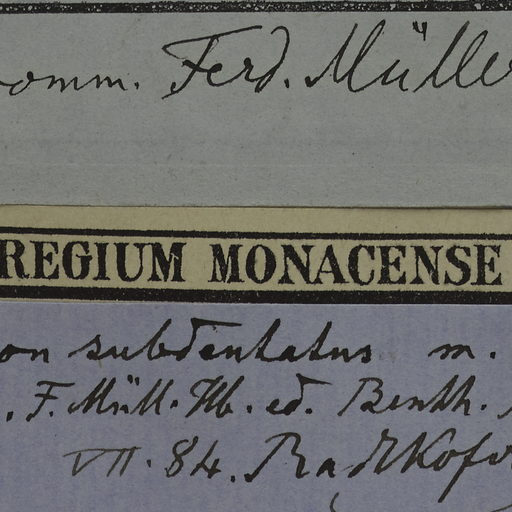 comm. Ferd. Müller
REGIUM MONACENSE
on subdentatus m.
. F. Müll. Hb. ed. Benth.
VII. 84. Radlkofer